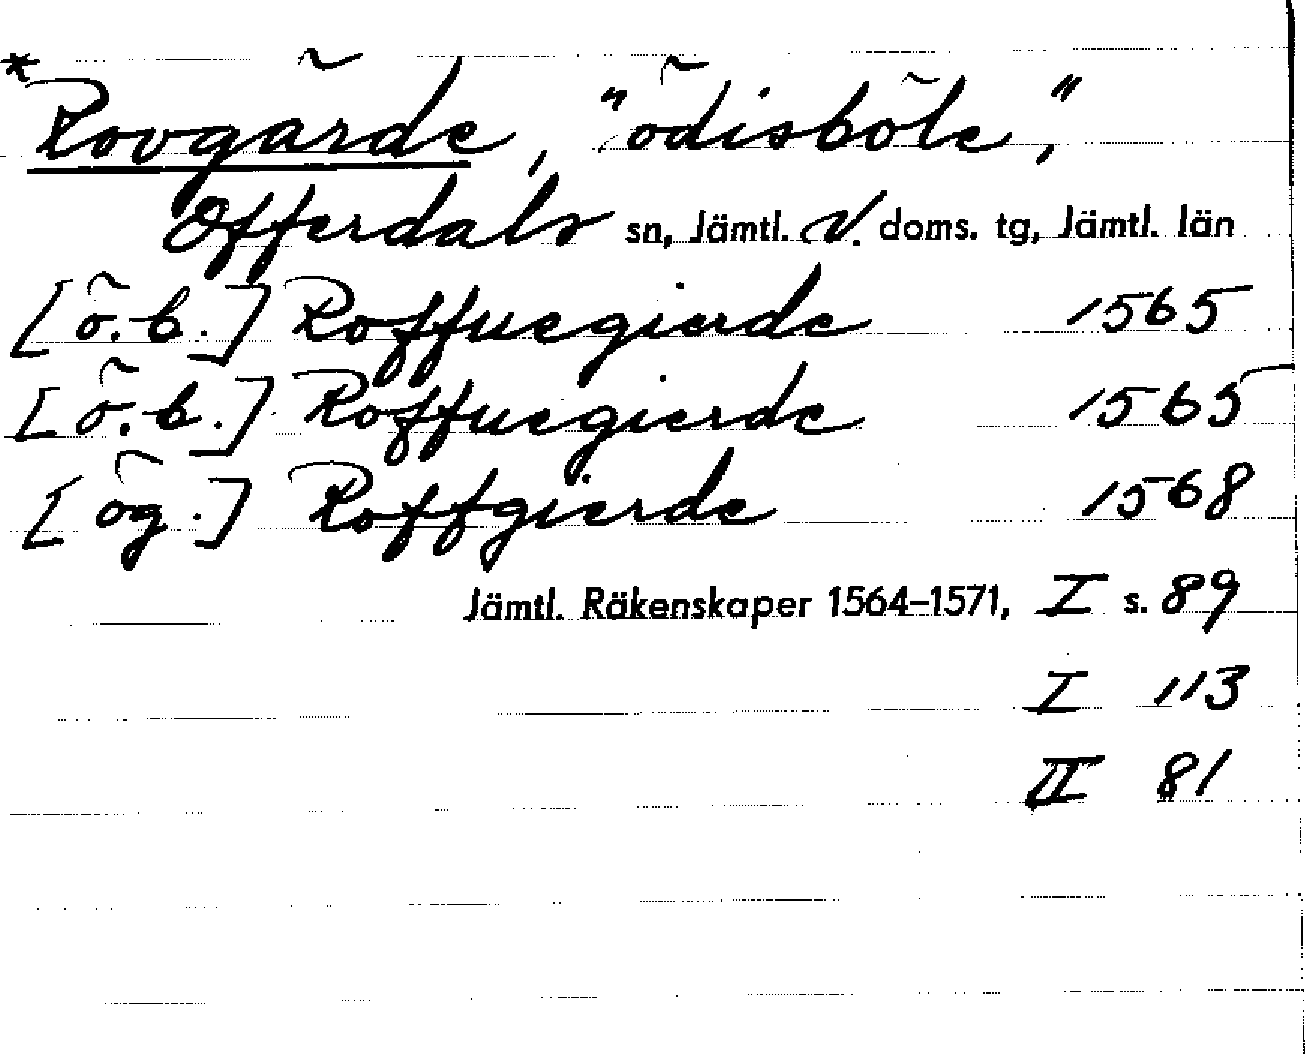 * Rovgärde, "ödisböle",
Offerdals sn, Jämtl. V. doms. tg, Jämtl. län
[ö.b.] Roffuegierde 1565
[ö.b.] Roffuegierde 1565
[ög.] Roffgierde 1568
Jämtl. Räkenskaper 1564–1571, I s. 89
I 113
II 81